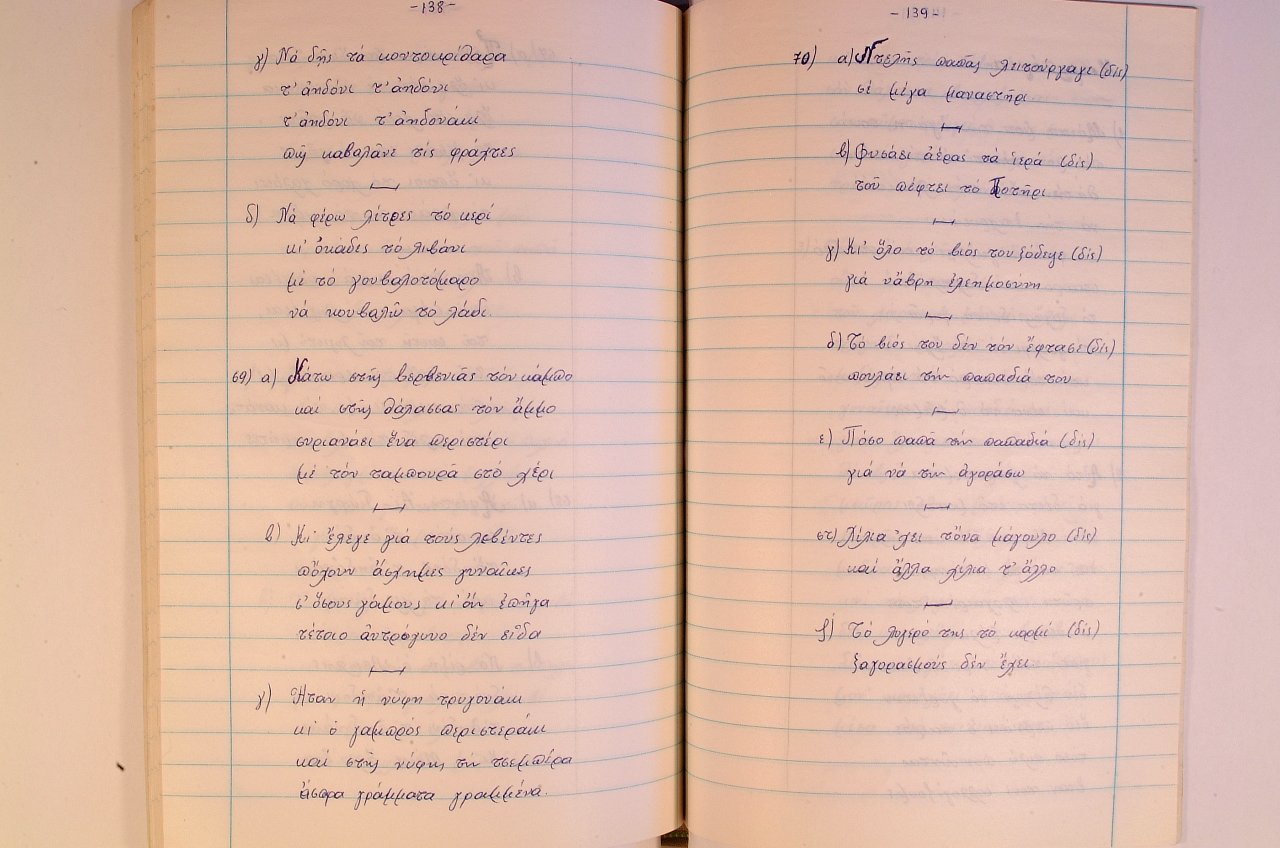 -138-
γ) Νά δῇς τά κοντοκρίθαρα
τ' ἀηδόνι τ' ἀηδόνι
τ' ἀηδόνι τ' ἀηδονάκι
πῶς καβαλᾶνε τίς φράχτες
δ) Νά φέρω λίτρες τό κερί
κι' ὀκάδες τό λιβάνι
μέ τό γουβαλοτόμαρο
νά κουβαλῶ τό λάδι.
69) α) Κάτω στῆς Βερβενιᾶς τόν κάμπο
καί στῆς θάλασσας τόν ἄμμο
συριανάει ἕνα περιστέρι
μέ τόν ταμπουρᾶ στό χέρι
β) Κι' ἔλεγε γιά τούς λεβέντες
πὄχουν ἄσχημες γυναῖκες
σ' ὅσους γάμους κι' ἄν ἐπῆγα
τέτοιο ἀντρόγυνο δέν εἶδα
γ) Ἦταν ἡ νύφη τρυγονάκι
κι' ὁ γαμπρός περιστεράκι
καί στῆς νύφης τήν τσεμπέρα
ἄσπρα γράμματα γραμμένα.
-139-
70) α) Ντελῆς παπᾶς λειτούργαγε (δίς)
σέ μέγα μαναστῆρι.
β) Φυσάει ἀέρας τά ἱερά (δίς)
τοῦ πέφτει τό Ποτῆρι
γ) Κι' ὅλο τό βιός του ξόδεψε (δίς)
γιά νἄβρη ἐλεημοσύνη
δ) Τό βιός του δέν τόν ἔφτασε (δίς)
πουλάει τήν παπαδιά του
ε) Πόσο παπᾶ τήν παπαδιά (δίς)
γιά νά τήν ἀγοράσω
στ) Χίλια 'χει τὄνα μάγουλο (δίς)
καί ἄλλα χίλια τ' ἄλλο
ζ) Τό λυγερό της τό κορμί (δίς)
ξαγορασμούς δέν ἔχει.